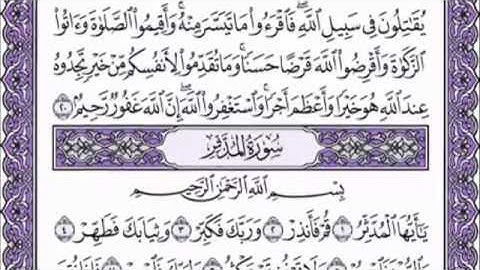 يُقَٰتِلُونَ فِى سَبِيلِ ٱللَّهِ ۖ فَٱقْرَءُوا۟ مَا تَيَسَّرَ مِنْهُ ۚ وَأَقِيمُوا۟ ٱلصَّلَوٰةَ وَءَاتُوا۟
ٱلزَّكَوٰةَ وَأَقْرِضُوا۟ ٱللَّهَ قَرْضًا حَسَنًا ۚ وَمَا تُقَدِّمُوا۟ لِأَنفُسِكُم مِّنْ خَيْرٍ تَجِدُوهُ
عِندَ ٱللَّهِ هُوَ خَيْرًا وَأَعْظَمَ أَجْرًا ۚ وَٱسْتَغْفِرُوا۟ ٱللَّهَ ۖ إِنَّ ٱللَّهَ غَفُورٌ رَّحِيمٌۢ ٢٠
سُورَةُ الْمُدَّثِّرِ
بِسْمِ ٱللَّهِ ٱلرَّحْمَٰنِ ٱلرَّحِيمِ
يَٰٓأَيُّهَا ٱلْمُدَّثِّرُ ١ قُمْ فَأَنذِرْ ٢ وَرَبَّكَ فَكَبِّرْ ٣ وَثِيَابَكَ فَطَهِّرْ ٤